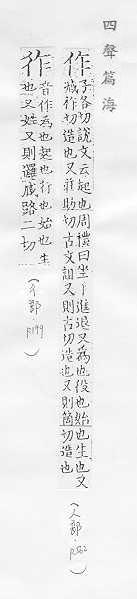 四聲篇海
作
子各切說文云起也周禮曰坐作進退又為也役也始也生也又
臧祚切造也又莊助切古文詛又則古切造也又則箇切造也
(人部,P562
㣅
音作為也起也行也始也生
也又姓又則邏臧路二切
(彳部
P199